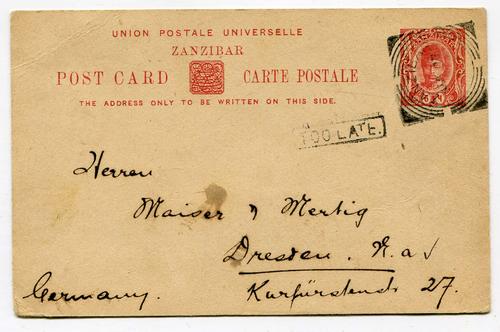 UNION POSTALE UNIVERSELLE
ZANZIBAR
POST CARD CARTE POSTALE
THE ADDRESS ONLY TO BE WRITTEN ON THIS SIDE.
TOO LATE.
Herren
Maiser & Mertig
Dresden. N. a/
Germany. Kurfürstenstr 27.